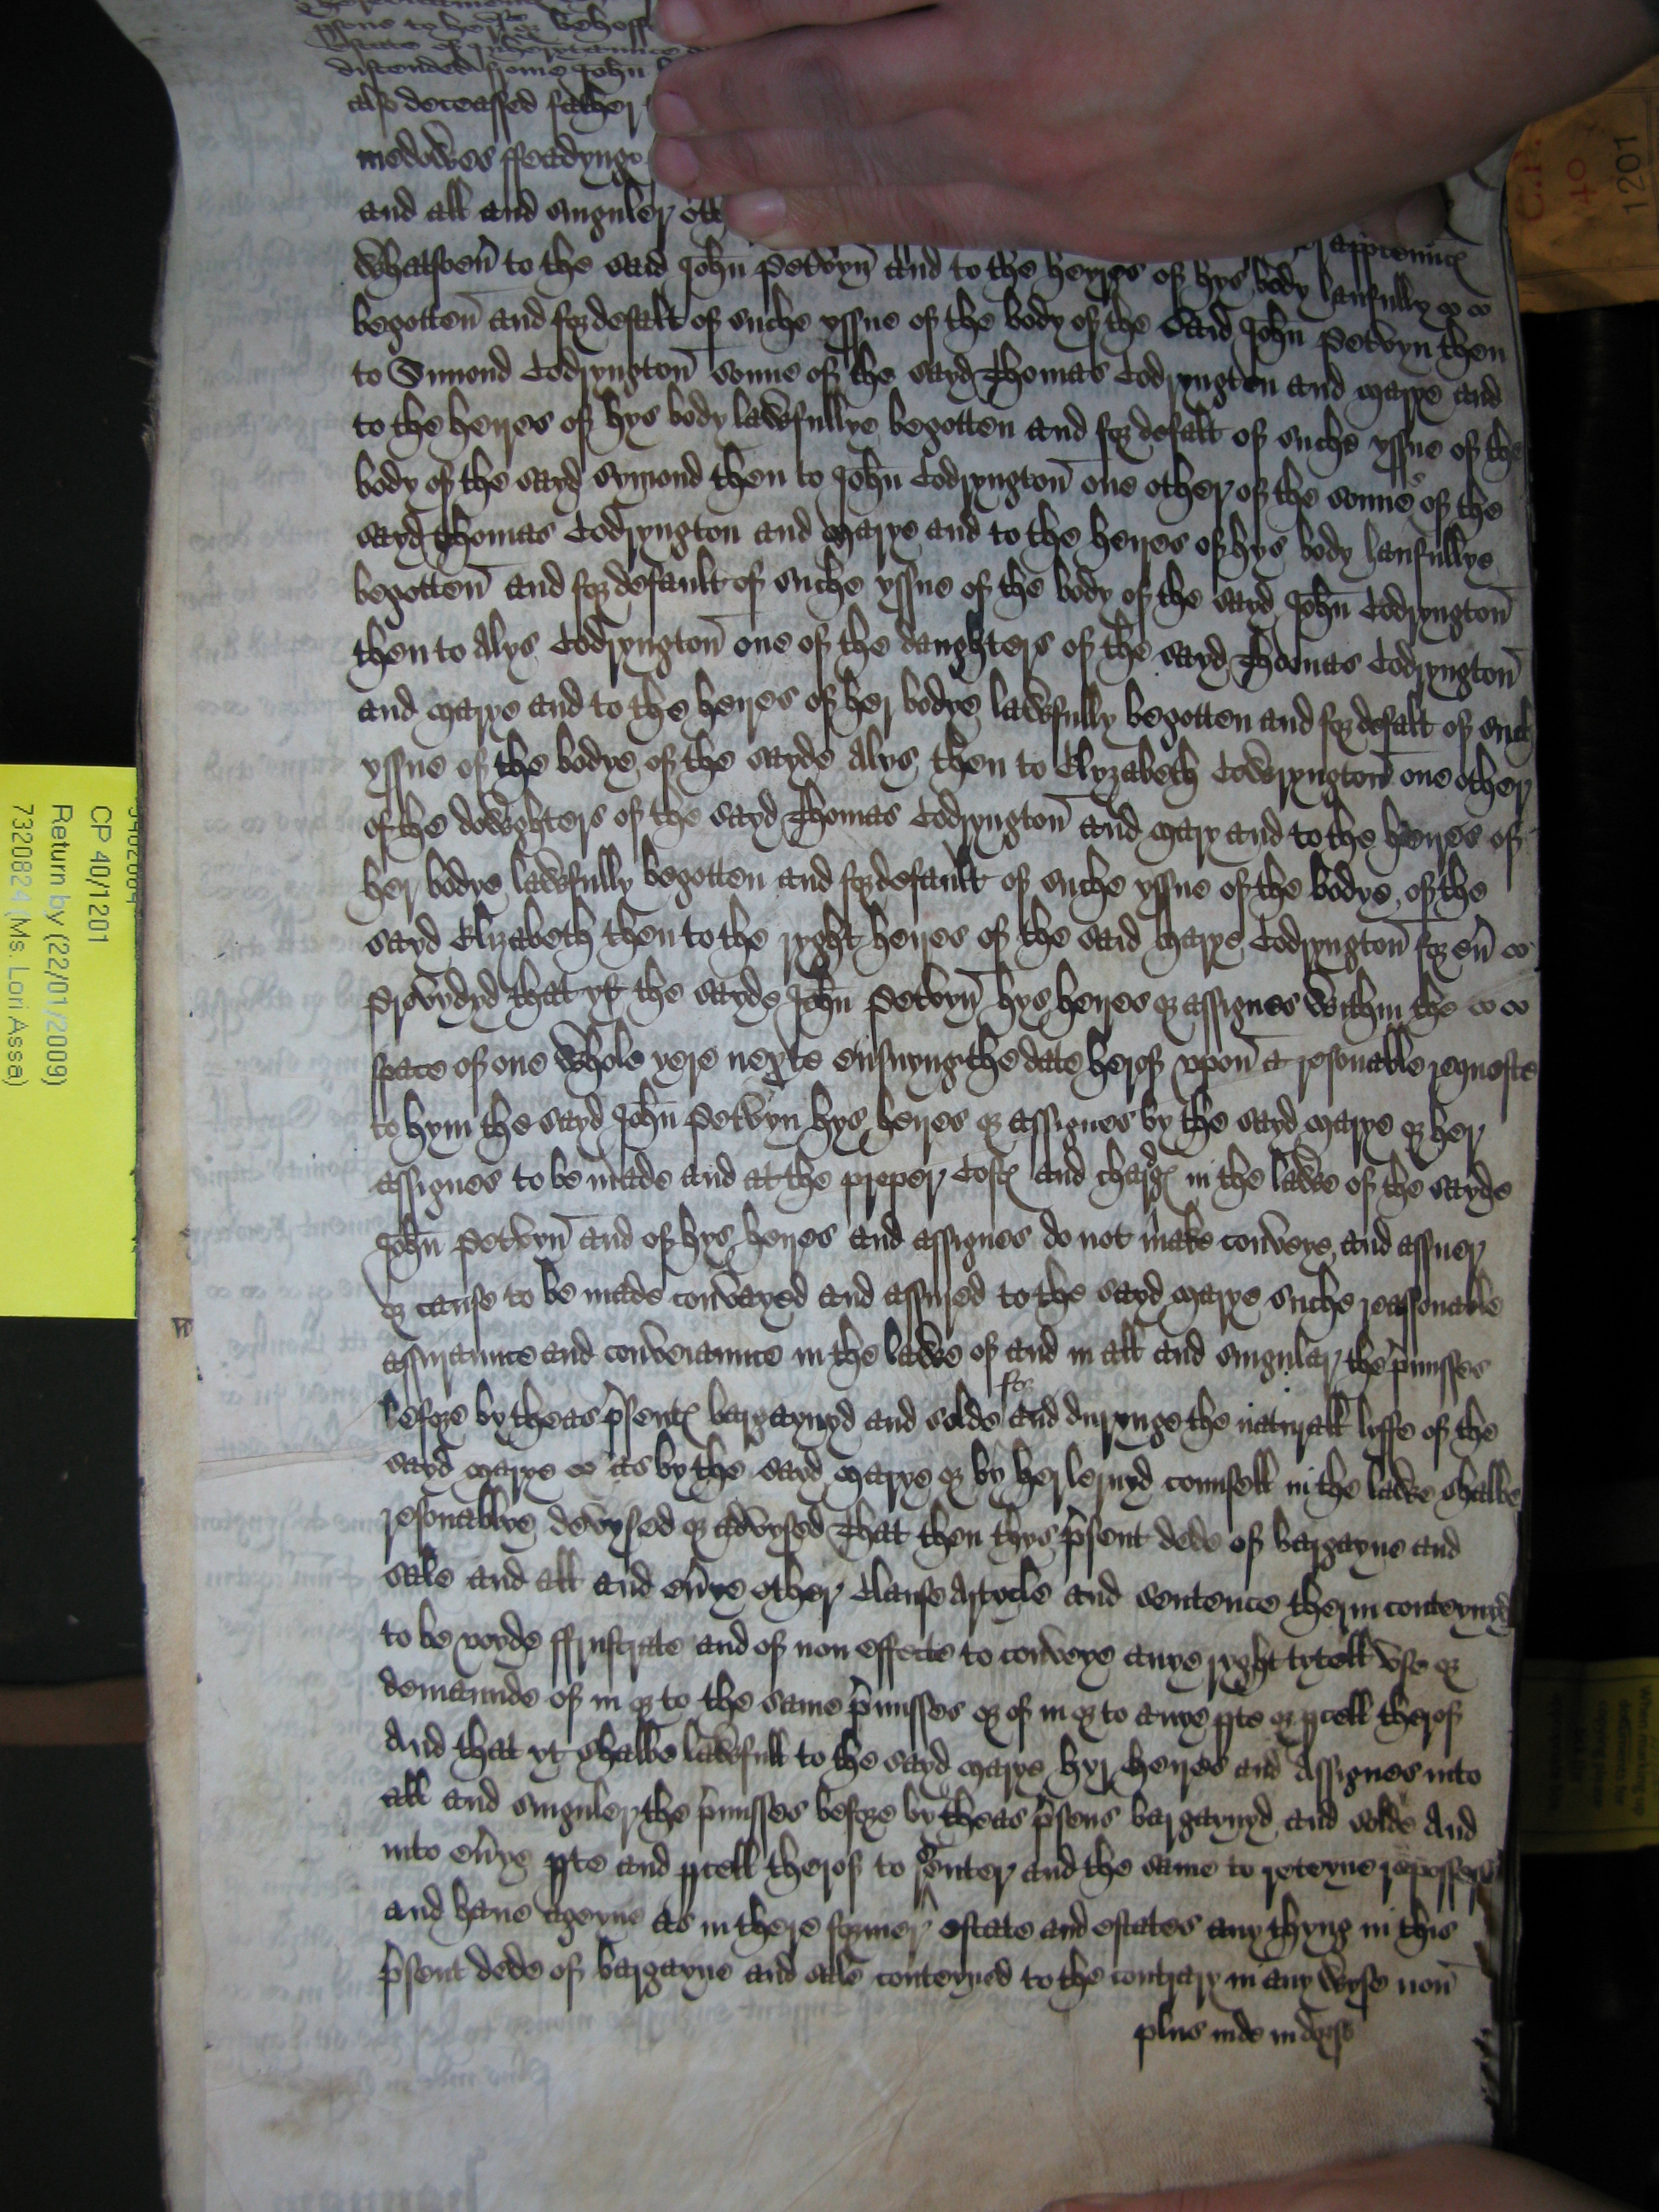 ssone to her or behoff
estate of inherytaunce
discended frome John
also deceassed father
medowes ffeadynge
and all and singuler oth
apptennc
whatsoeu to the said John Petvyn and to the heyres of hys body laufully
begotten and for defalt of suche yssue of the body of the said John Petvyn then
to Simond Codryngton sonne of the sayd Thomas Codryngton and Marye and
to the heires of hys body lawfullye begotten and for defalt of suche yssue of the
body of the sayd Symond then to John Codryngton one other of the sonnes of the
sayd Thomas Codryngton and Marye and to the heires of hys body laufullye
begotten and for default of suche yssue of the body of the sayd John Codryngton
then to Alys Codryngton one of the daughters of the sayd Thomas Codryngton
and Marye and to the heires of her bodye lawfully begotten and for defalt of such
yssue of the bodye of the sayde Alys then to Elyzabeth Cowdryngton one other
of the dowghters of the sayd Thomas Codryngton and Mary and to the heires of
her bodye lawfully begotten and for default of suche yssue of the bodye of the
sayd Elizabeth then to the ryght heires of the said Marye Codryngton for eu
Provydyd that yf the sayde John Petvyn hys heires or assignes within the
space of one whole yere nexte ensuyng the date herof vpon a resonable requeste
to hym the sayd John Petvyn hys heires or assignes by the sayd Marye or her
assignes to be made and at the proper Cost and charg in the lawe of the sayde
John Petvyn and of hys heires and assignes do not make conveye and assuer
or cause to be made convayed and assured to the sayd Marye suche reassonable
assuraunce and conveiaunce in the lawe of and in all and singular the pmisses
before by theas psent bargaynyd and solde and durynge the naturall lyffe of the
for
sayd Marye as by the sayd Marye or by her lernyd counsell in the lawe shalbe
resonablye devysed or advysed That then thys psent dede of bargayne and
sale and all and euye other Clause Artycle and sentence therin conteynyd
to be voyde ffrustrate and of non effecte to conveye anye ryght tytell vse or
demaunde of in or to the same pmisses or of in or to anye pte or pcell therof
And that yt shalbe lawfull to the sayd Marye hyr heires and Assignes into
all and singuler the pmisses before by theas psens bargaynyd and solde And
into euye pte and pcell therof to Renter and the same to reteyne repossesse
and haue ageyne as in there former estate and estates any thyng in this
psent dede of bargayne and sale conteyned to the contrary in any wyse non
plus inde in dorso
C.P.
40
1201
CP 40/1201
Return by (22/01/2009)
7320824 (Ms. Lori Assa)